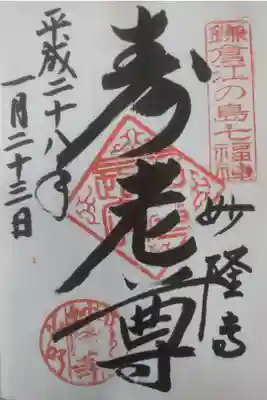 鎌倉江の島七福神
妙隆寺
寿老尊
平成二十八年
一月二十三日